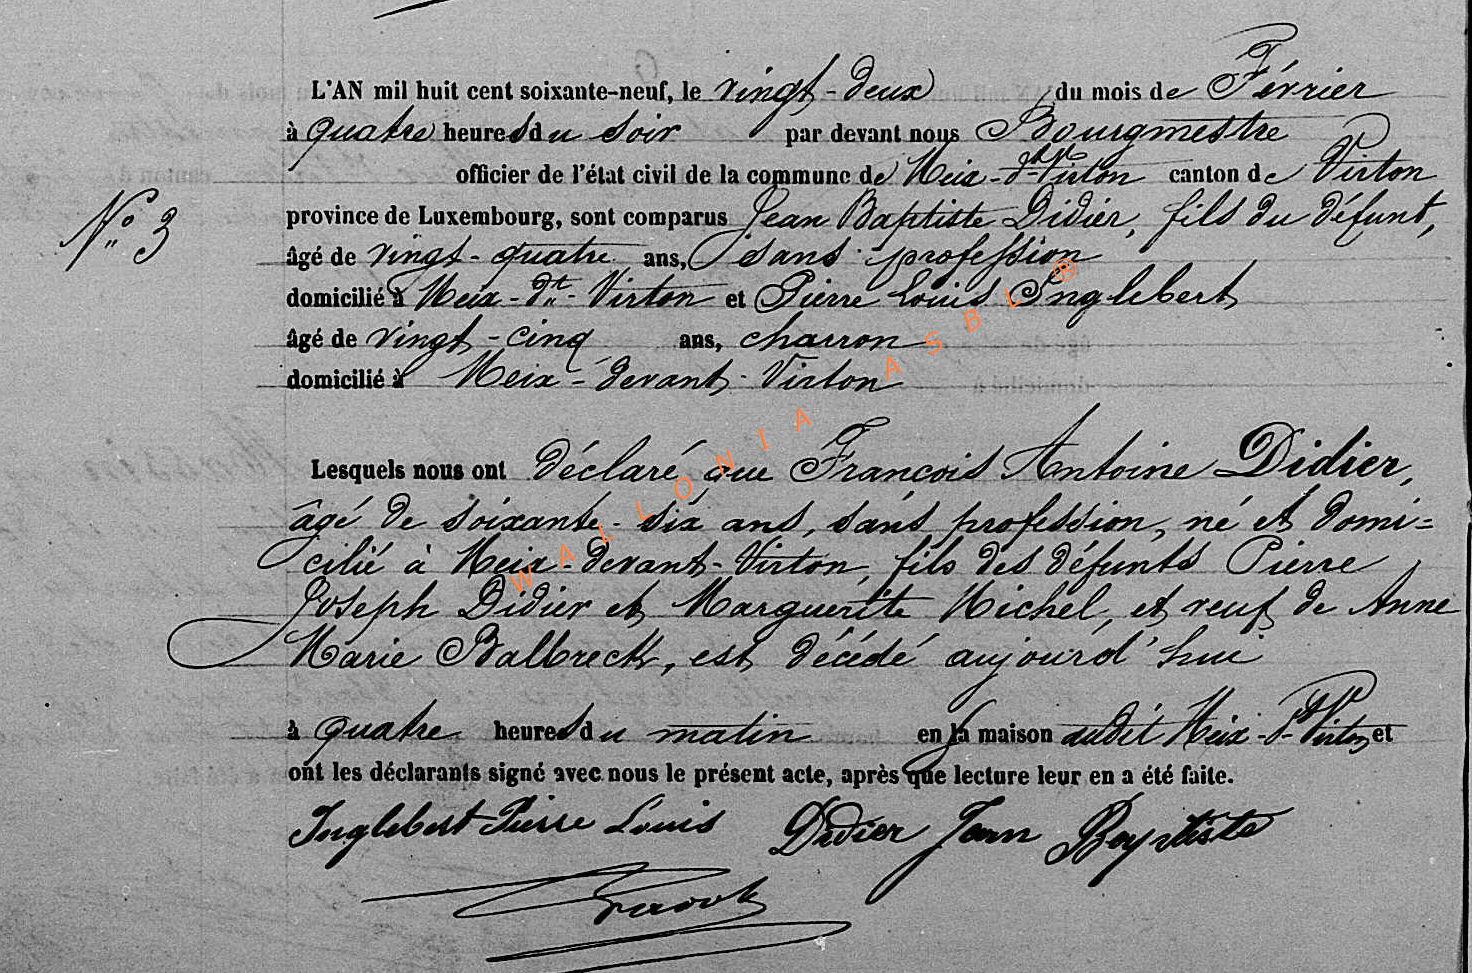 L'AN mil huit cent soixante-neuf, le vingt-deux du mois de Février
à quatre heures du soir par devant nous Bourgmestre
officier de l'état civil de la commune de Meix-dt-Virton canton de Virton
N° 3
province de Luxembourg, sont comparus Jean Baptiste Didier, fils du défunt,
âgé de vingt-quatre ans, sans profession
domicilié à Meix-dt-Virton et Pierre Louis Inglebert
âgé de vingt-cinq ans, charron
domicilié à Meix-devant-Virton
Lesquels nous ont déclaré que Francois Antoine Didier,
âgé de soixante-six ans, sans profession, né et domi=
cilié à Meix-devant-Virton, fils des défunts Pierre
Joseph Didier et Marguerite Michel, et veuf de Anne
Marie Balbreck, est décédé aujourd'hui
à quatre heures du matin en la maison audit Meix-dt-Virton et
ont les déclarants signé avec nous le présent acte, après que lecture leur en a été faite.
Inglebert Pierre Louis Didier Jean Baptiste
WALLONIA ASBL ®